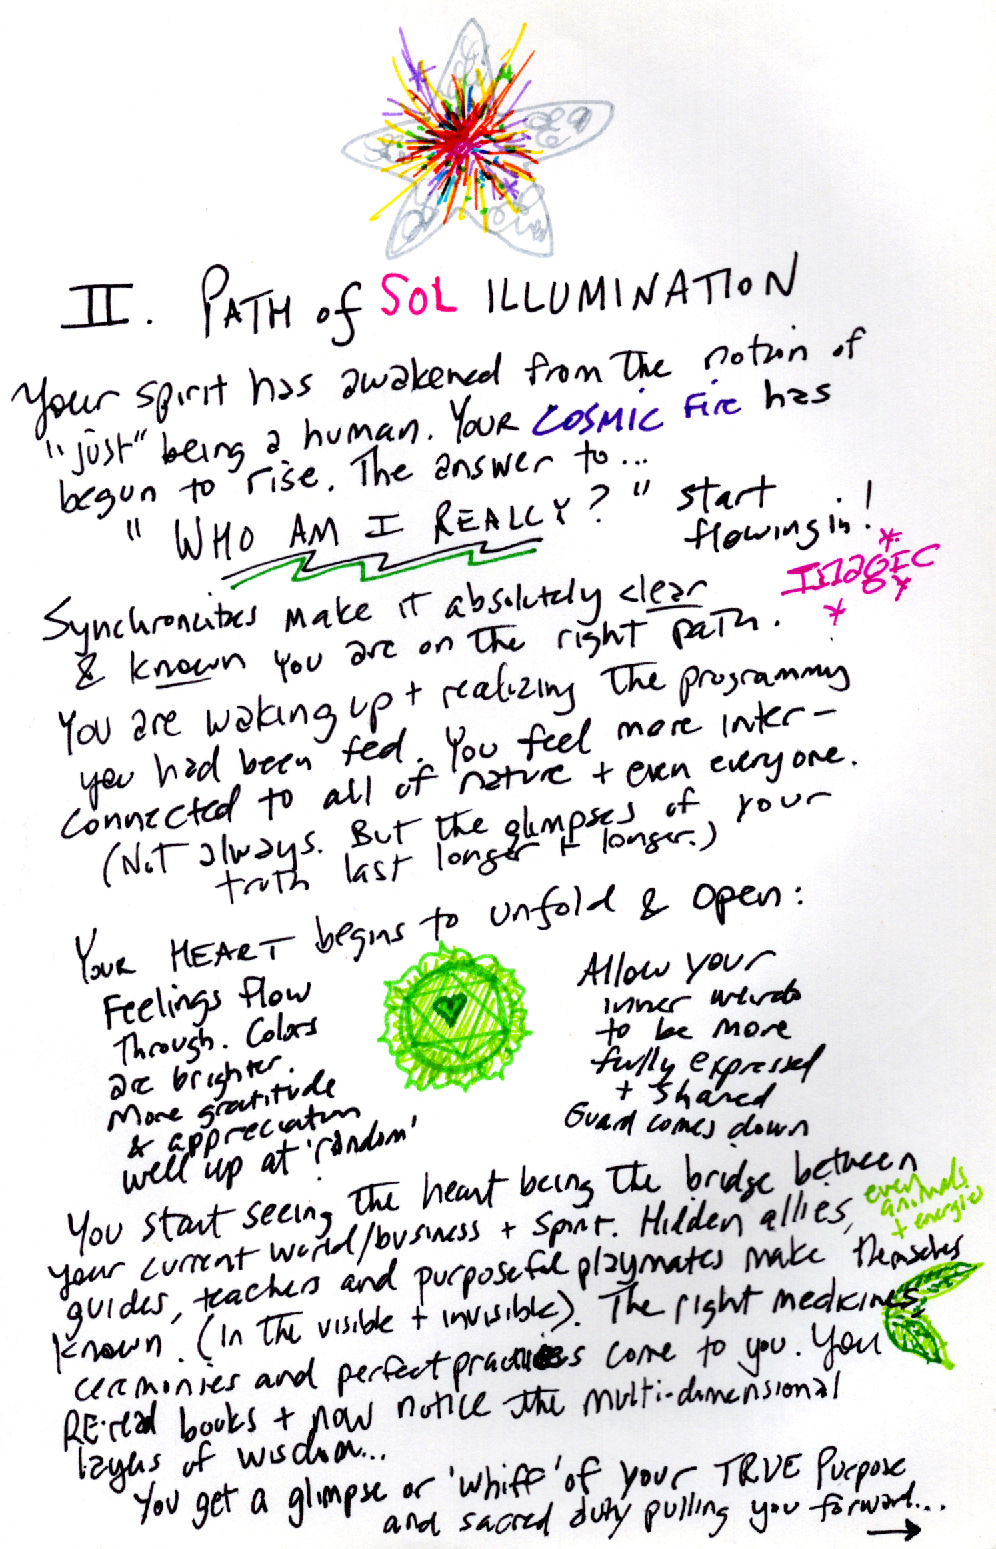 II. PATH of SOL ILLUMINATION
Your spirit has awakened from the notion of
"just" being a human. Your COSMIC Fire has
begun to rise. The answer to...
"WHO AM I REALLY?" start
flowing in!
IMAGIC
Synchroncities make it absolutely clear
& known you are on the right path.
You are waking up + realizing the programming
you had been fed. You feel more inter-
connected to all of nature + even everyone.
(Not always. But the glimpses of your
truth last longer + longer.)
Your HEART begins to unfold & open:
Feelings flow
through. Colors
are brighter.
More gratitude
& appreciation
well up at 'random'
Allow your
inner weirdo
to be more
fully expressed
+ shared
Guard comes down
You start seeing the heart being the bridge between
your current world/business + spirit. Hidden allies,
even
animals
+ energies
guides, teachers and purposeful playmates make themselves
known. (In the visible + invisible). The right medicines,
ceremonies and perfect practices come to you. You
RE-read books + now notice the multi-dimensional
layers of wisdom...
You get a glimpse or 'whiff' of your TRUE Purpose
and sacred duty pulling you forward...